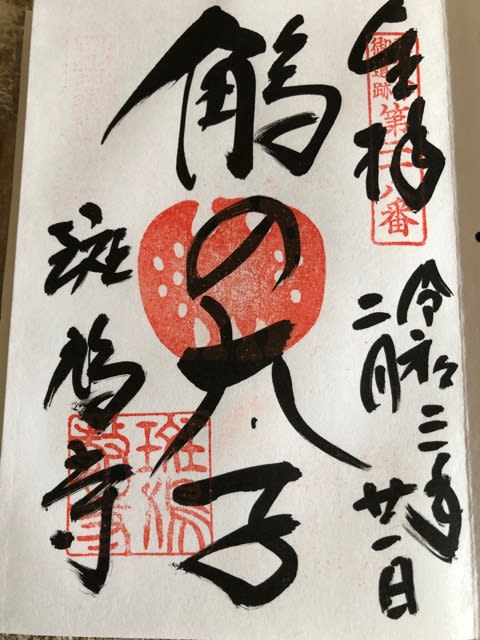 奉拝
御遺跡
第二十八番
令和三年
二月廿一日
鵤の太子
斑鳩寺